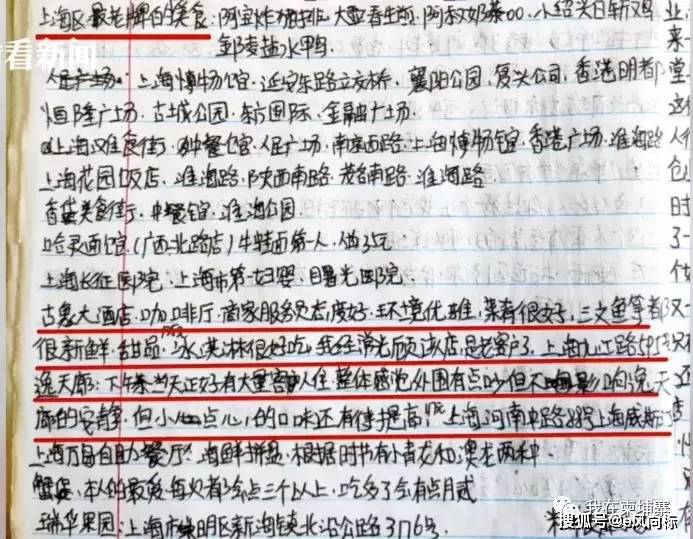 看看新闻
上海区最老牌的美食:阿宝炸猪排.大壶春生煎.阿叔奶茶00.小绍兴白斩鸡
盐水鸭
人民广场.上海博物馆.延安东路立交桥.襄阳公园.复兴公司.香港明都
恒隆广场.古城公园.东方国际.金融广场.
上海汉食街.种餐馆.人民广场.南京西路.上海博物馆.香港广场.淮海路
上海花园饭店.淮海路.陕西南路.茂名南路.淮海路.
美食街.中餐馆.淮海公园.
哈灵面馆.(广西北路店)牛蛙面第一人.25元
上海长征医院.上海市第一妇婴.曙光医院.
古象大酒店.咖啡厅.商家服务员态度好.环境优雅.菜肴很好.三文鱼等都
很新鲜.甜品.冰淇淋很好吃.我经常光顾该店.是老客户了.上海九江路595
逸天廊:下午茶.当天正好有大量客人住.整体感觉外围有点吵但不影响逸天
廊的安静.但小点心.的口味还有待提高.上海河南中路88号上海威斯
上海万自助餐厅:海鲜拼盘.根据时节有小青龙和澳龙两种
蟹.本人的最爱每次都会点三个以上.吃多了会有点月贰
瑞华果园:上海市崇明区新海镇北沿公路3176号.
我在柬埔寨
搜狐号@b风向标